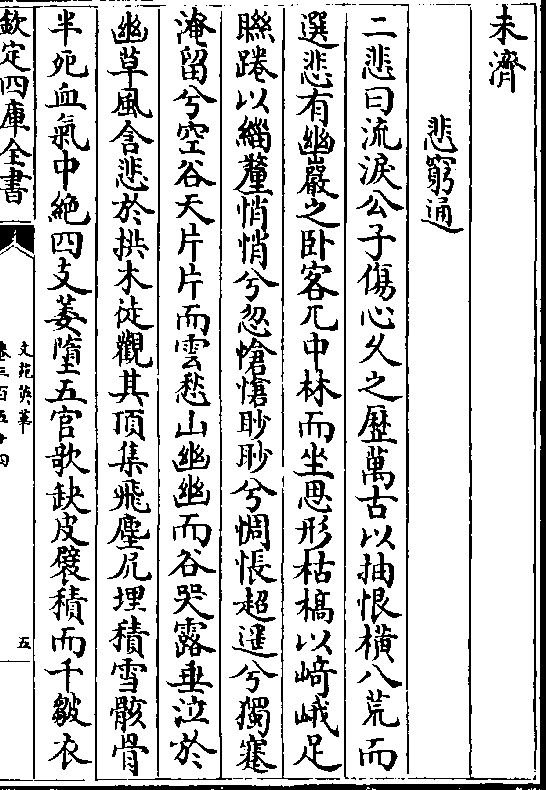 未濟
悲窮通
二悲曰流淚公子傷心久之歷萬古以抽恨橫八荒而
選悲有幽巖之卧客兀中林而坐思形枯槁以崎峨足
聮踡以緇釐悄悄兮忽愴愴眇眇兮惆悵超遥兮獨蹇
淹留兮空谷天片片而雲愁山幽幽而谷哭露垂泣於
幽草風含悲於拱木徒觀其頂集飛塵尻埋積雪骸骨
半死血氣中絶四支萎墮五官欹缺皮襞積而千皺衣
欽定四庫全書
文苑英華
卷三百五十四
五